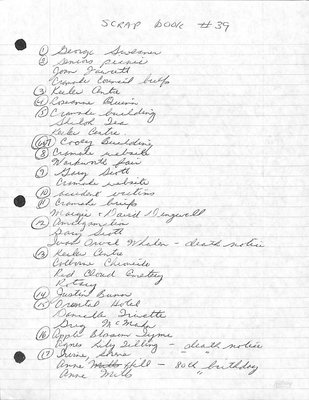 SCRAP BOOK #39
① George Sweener
② Seniors picnic
Tom Fawcett
Cramahe Council briefs
③ Keeler Centre
④ Roseanne Quinn
⑤ Cramahe building
Shiloh Tea
Keeler Centre
⑥⑦ Cooey Building
⑧ Cramahe website
Warkworth fair
⑨ Gary Scott
Cramahe website
⑩ accident victims
⑪ Cramahe briefs
Margie & David Dingwall
⑫ Amalgamation
Gary Scott
Ivan Whalen - death notice
⑬ Keeler Centre
Colborne Chronicle
Red Cloud Cemetery
Rotary
⑭ Justin Bunn
⑮ Oriental Hotel
Danielle Trivette
Greg McMahon
⑯ Apple Blossom Tyme
Agnes Lily Tilling - death notice
⑰ Irene, Shane " "
Anne Hill - 80th birthday
Anne Mills "